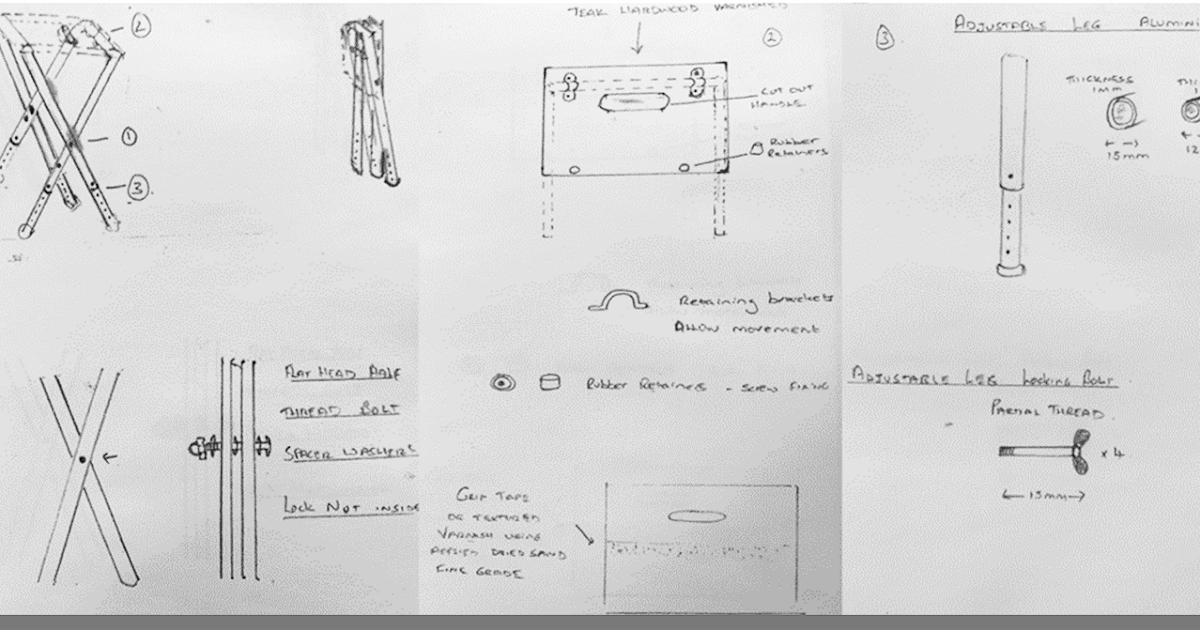 ②
①
③
FLAT HEAD HALF
THREAD BOLT
SPACER WASHERS
LOCK NOT INSIDE
TEAK HARDWOOD VARNISHED
②
CUT OUT
HANDLE
RUBBER
RETAINERS
RETAINING BRACKETS
ALLOW MOVEMENT
RUBBER RETAINERS - SCREW FIXING
GRIP TAPE
OR TEXTURED
VARNISH USING
APPLIED DRIED SAND
FINE GRADE
③
ADJUSTABLE LEG ALUMINI
THICKNESS
1MM
15mm
THI
12
ADJUSTABLE LEG LOCKING BOLT
PARTIAL THREAD
x 4
15mm